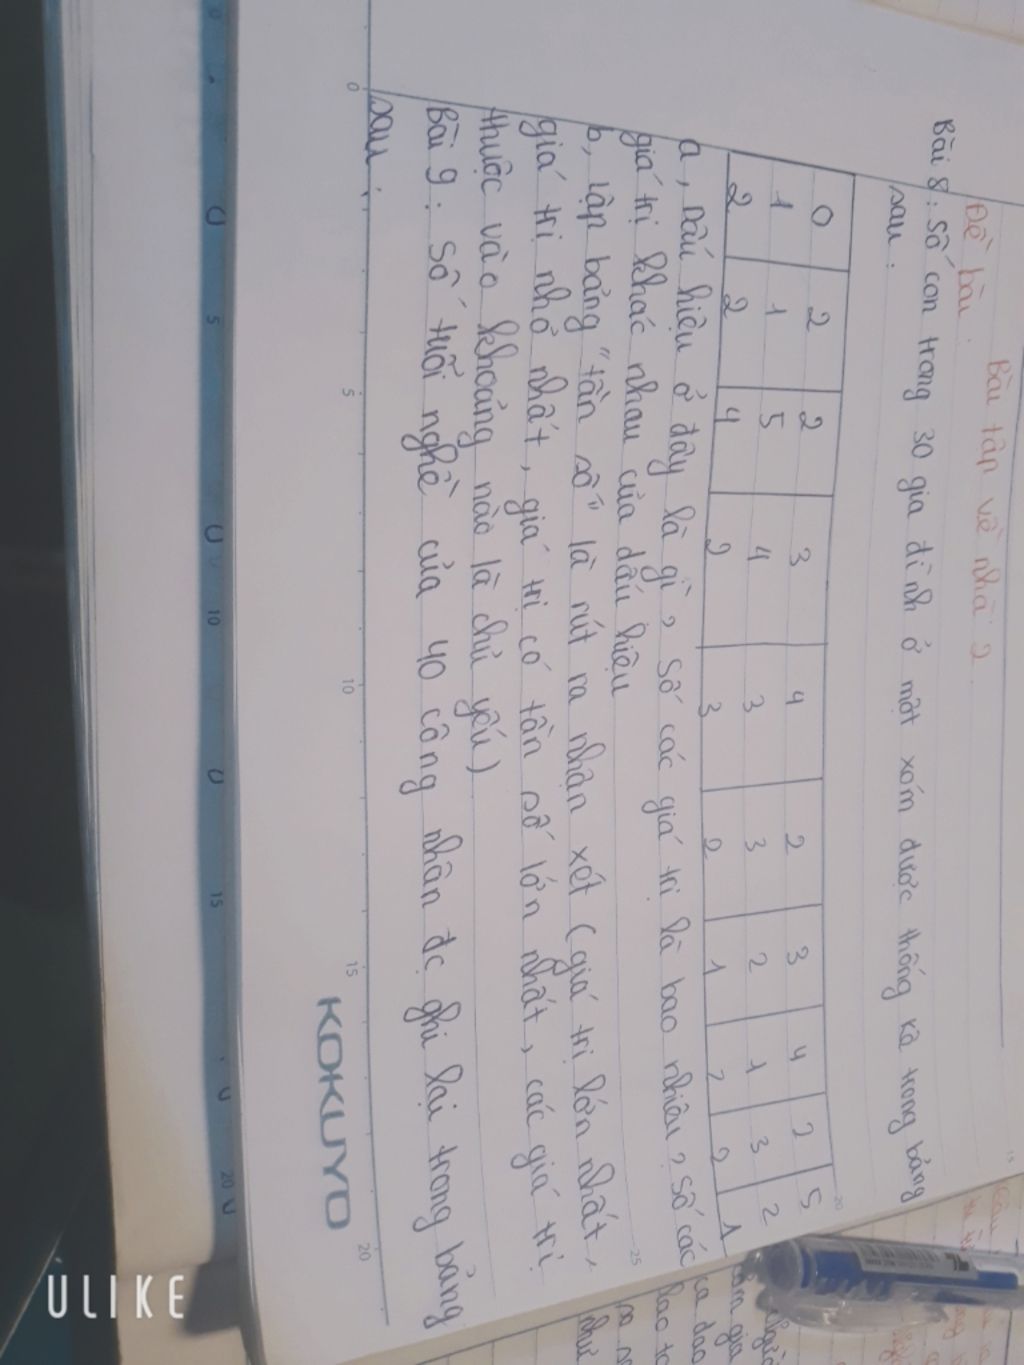 Bài tập về nhà 2
Đề bài:
Bài 8: Số con trong 30 gia đình ở một xóm được thống kê trong bảng
sau:
0 2 2 3 4 2 3 4 2 5
1 1 5 4 3 3 2 1 3 2
2 2 4 2 3 2 1 2 2 1
a, Dấu hiệu ở đây là gì? Số các giá trị là bao nhiêu? Số các
giá trị khác nhau của dấu hiệu
b, lập bảng "tần số" là rút ra nhận xét (giá trị lớn nhất,
giá trị nhỏ nhất, giá trị có tần số lớn nhất, các giá trị
thuộc vào khoảng nào là chủ yếu)
Bài 9: Số tuổi nghề của 40 công nhân đc ghi lại trong bảng
sau:
KOKUYO
0 5 10 15 20
5 10 15 20
ULIKE